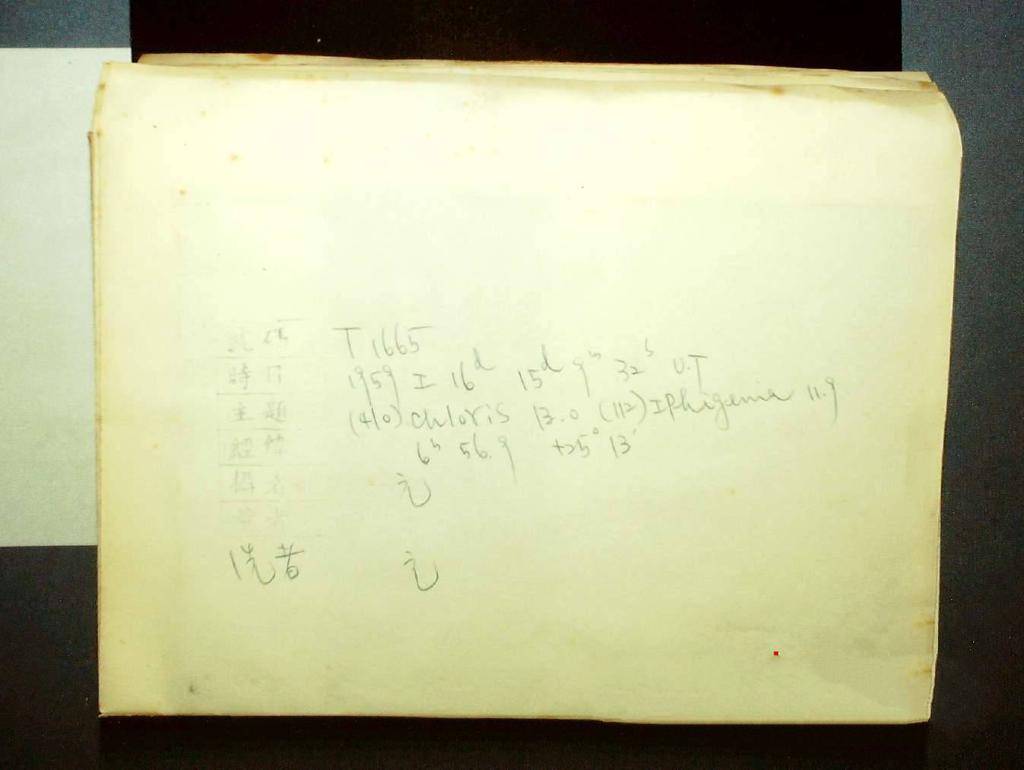 號碼 T 1665
時日 1959 I 16d 15d 9h 32s U.T
主題 (410) chloris 13.0 (112) Iphigenia 11.9
經緯 6h 56.9 +25° 13'
攝者 元
洗者 元